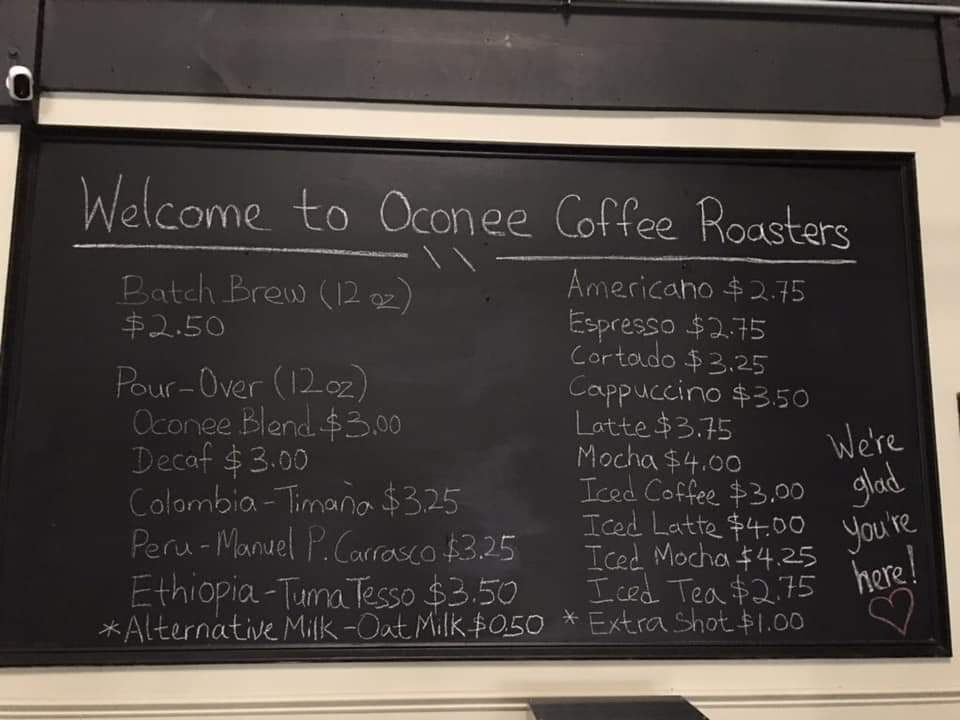 Welcome to Oconee Coffee Roasters
Batch Brew (12 oz)
$2.50
Pour-Over (12oz)
Oconee Blend $3.00
Decaf $3.00
Colombia - Timaña $3.25
Peru - Manuel P. Carrasco $3.25
Ethiopia - Tuma Tesso $3.50
*Alternative Milk - Oat Milk $0.50
Americano $2.75
Espresso $2.75
Cortado $3.25
Cappuccino $3.50
Latte $3.75
Mocha $4.00
Iced Coffee $3.00
Iced Latte $4.00
Iced Mocha $4.25
Iced Tea $2.75
* Extra Shot $1.00
We're
glad
you're
here!